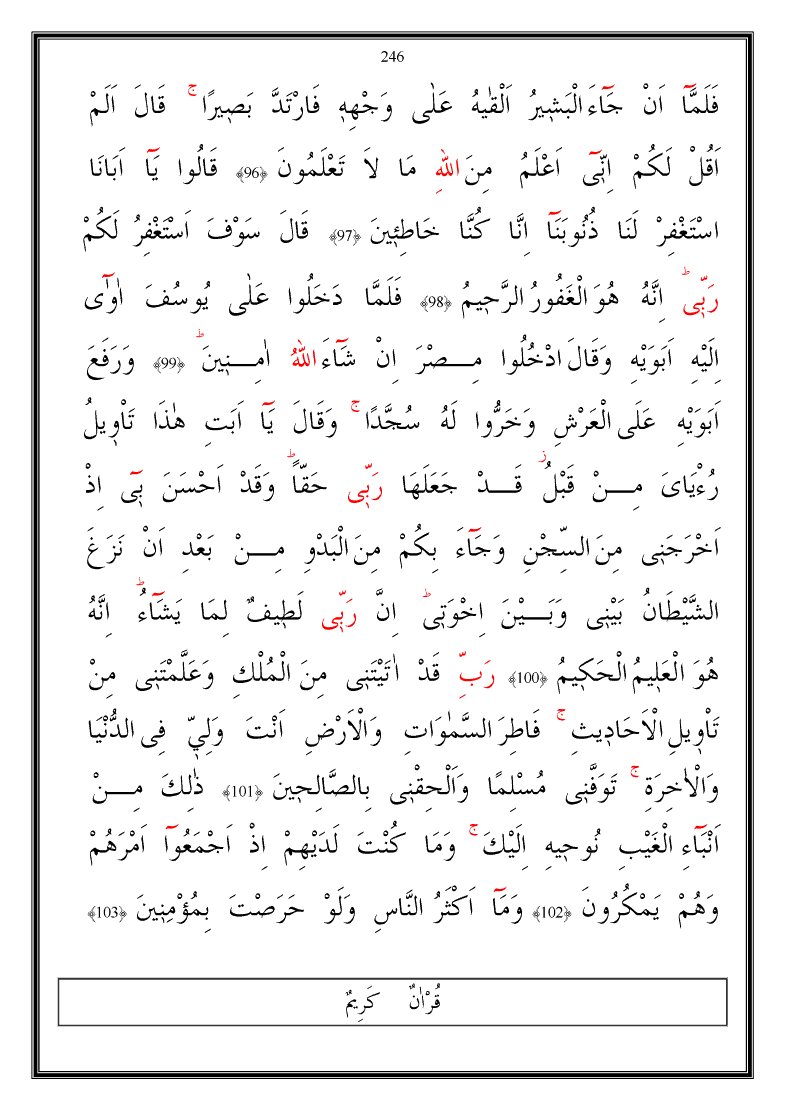 246
فَلَمَّٓا اَنْ جَٓاءَ الْبَشٖيرُ اَلْقٰيهُ عَلٰى وَجْهِهٖ فَارْتَدَّ بَصٖيرًا ۚ قَالَ اَلَمْ
اَقُلْ لَكُمْ اِنّٖٓى اَعْلَمُ مِنَ اللهِ مَا لَا تَعْلَمُونَ ﴿96﴾ قَالُوا يَٓا اَبَانَا
اسْتَغْفِرْ لَنَا ذُنُوبَنَٓا اِنَّا كُنَّا خَاطِپٖٔينَ ﴿97﴾ قَالَ سَوْفَ اَسْتَغْفِرُ لَكُمْ
رَبّٖى ؕ اِنَّهُ هُوَ الْغَفُورُ الرَّحٖيمُ ﴿98﴾ فَلَمَّا دَخَلُوا عَلٰى يُوسُفَ اٰوٰٓى
اِلَيْهِ اَبَوَيْهِ وَقَالَ ادْخُلُوا مِـــصْرَ اِنْ شَٓاءَ اللهُ اٰمِـــنٖينَ ؕ ﴿99﴾ وَرَفَعَ
اَبَوَيْهِ عَلَى الْعَرْشِ وَخَرُّوا لَهُ سُجَّدًا ۚ وَقَالَ يَٓا اَبَتِ هٰذَا تَاْوٖيلُ
رُءْيَاىَ مِـــنْ قَبْلُ ؗ قَـــدْ جَعَلَهَا رَبّٖى حَقًّا ؕ وَقَدْ اَحْسَنَ بٖٓى اِذْ
اَخْرَجَنٖى مِنَ السِّجْنِ وَجَٓاءَ بِكُمْ مِنَ الْبَدْوِ مِـــنْ بَعْدِ اَنْ نَزَغَ
الشَّيْطَانُ بَيْنٖى وَبَـــيْنَ اِخْوَتٖى ؕ اِنَّ رَبّٖى لَطٖيفٌ لِمَا يَشَٓاءُ ؕ اِنَّهُ
هُوَ الْعَلٖيمُ الْحَكٖيمُ ﴿100﴾ رَبِّ قَدْ اٰتَيْتَنٖى مِنَ الْمُلْكِ وَعَلَّمْتَنٖى مِنْ
تَاْوٖيلِ الْاَحَادٖيثِ ۚ فَاطِرَ السَّمٰوَاتِ وَالْاَرْضِ اَنْتَ وَلِيّٖ فِى الدُّنْيَا
وَالْاٰخِرَةِ ۚ تَوَفَّنٖى مُسْلِمًا وَاَلْحِقْنٖى بِالصَّالِحٖينَ ﴿101﴾ ذٰلِكَ مِـــنْ
اَنْبَٓاءِ الْغَيْبِ نُوحٖيهِ اِلَيْكَ ۚ وَمَا كُنْتَ لَدَيْهِمْ اِذْ اَجْمَعُٓوا اَمْرَهُمْ
وَهُمْ يَمْكُرُونَ ﴿102﴾ وَمَٓا اَكْثَرُ النَّاسِ وَلَوْ حَرَصْتَ بِمُؤْمِنٖينَ ﴿103﴾
قُرْاٰنٌ كَرٖيمٌ